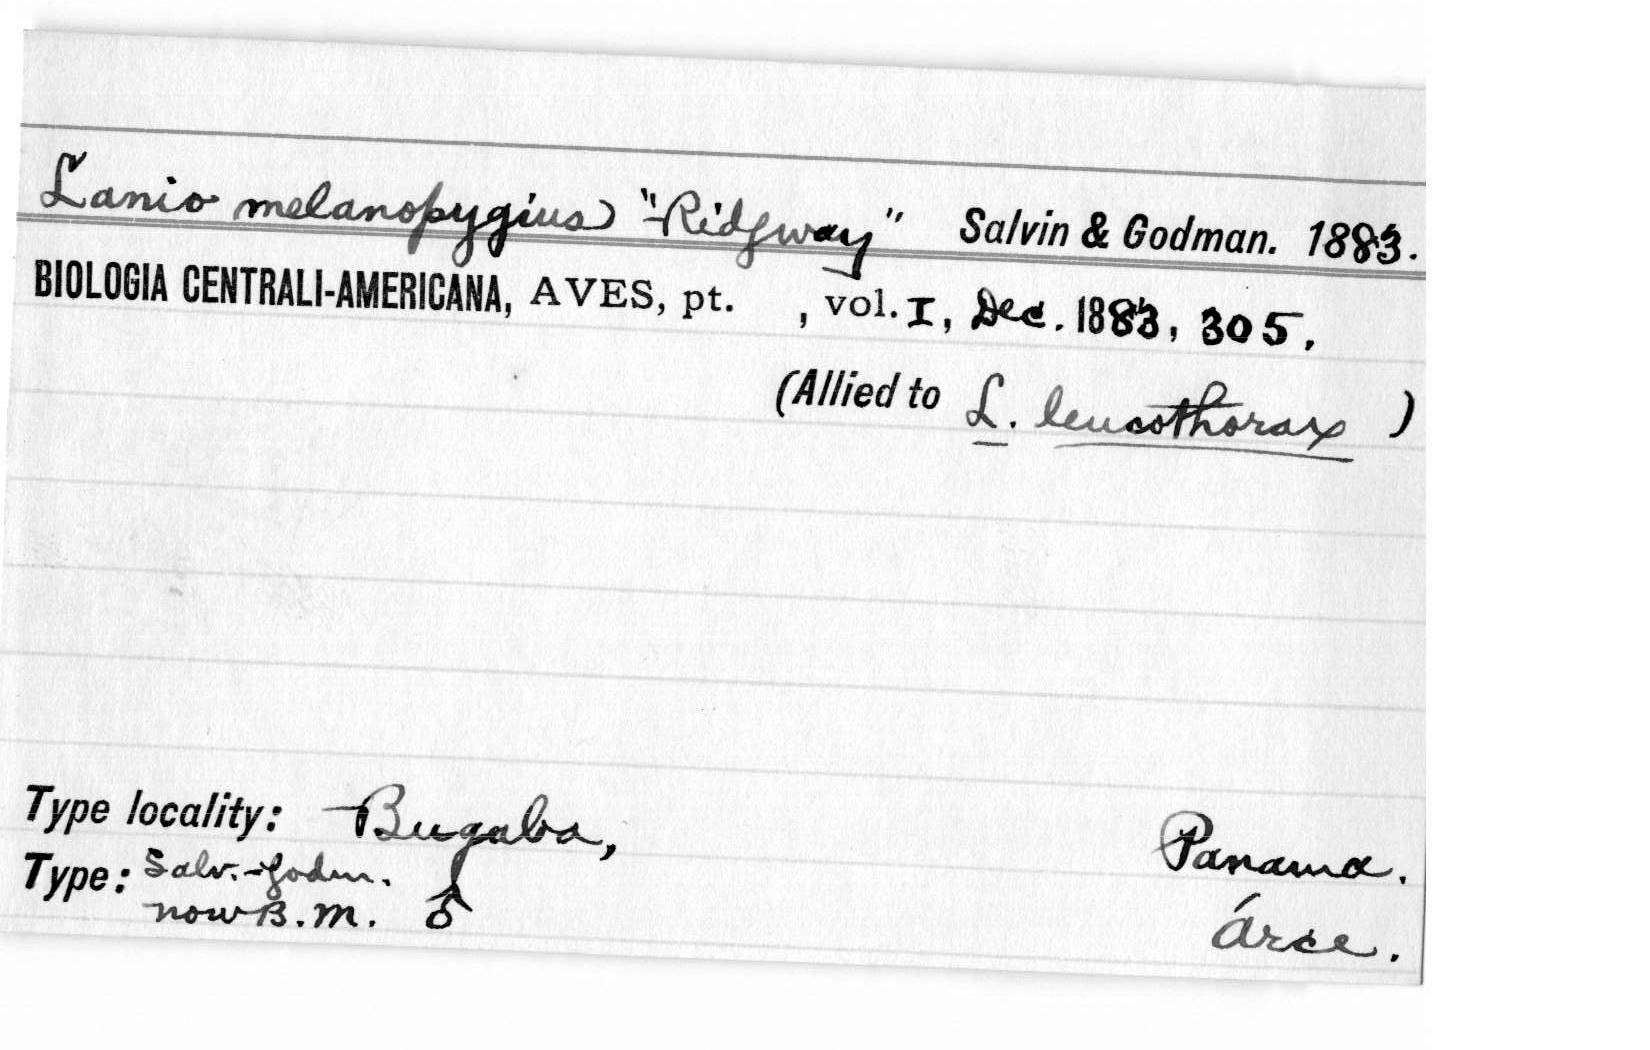 Lanio melanopygius "Ridgway" Salvin & Godman. 1883.
BIOLOGIA CENTRALI-AMERICANA, AVES, pt. , vol. I, Dec. 1883, 305.
(Allied to L. leucothorax )
Type locality: Bugaba, Panama.
Type: Salv.-Godm.
now B.M. ♂ Arcé.